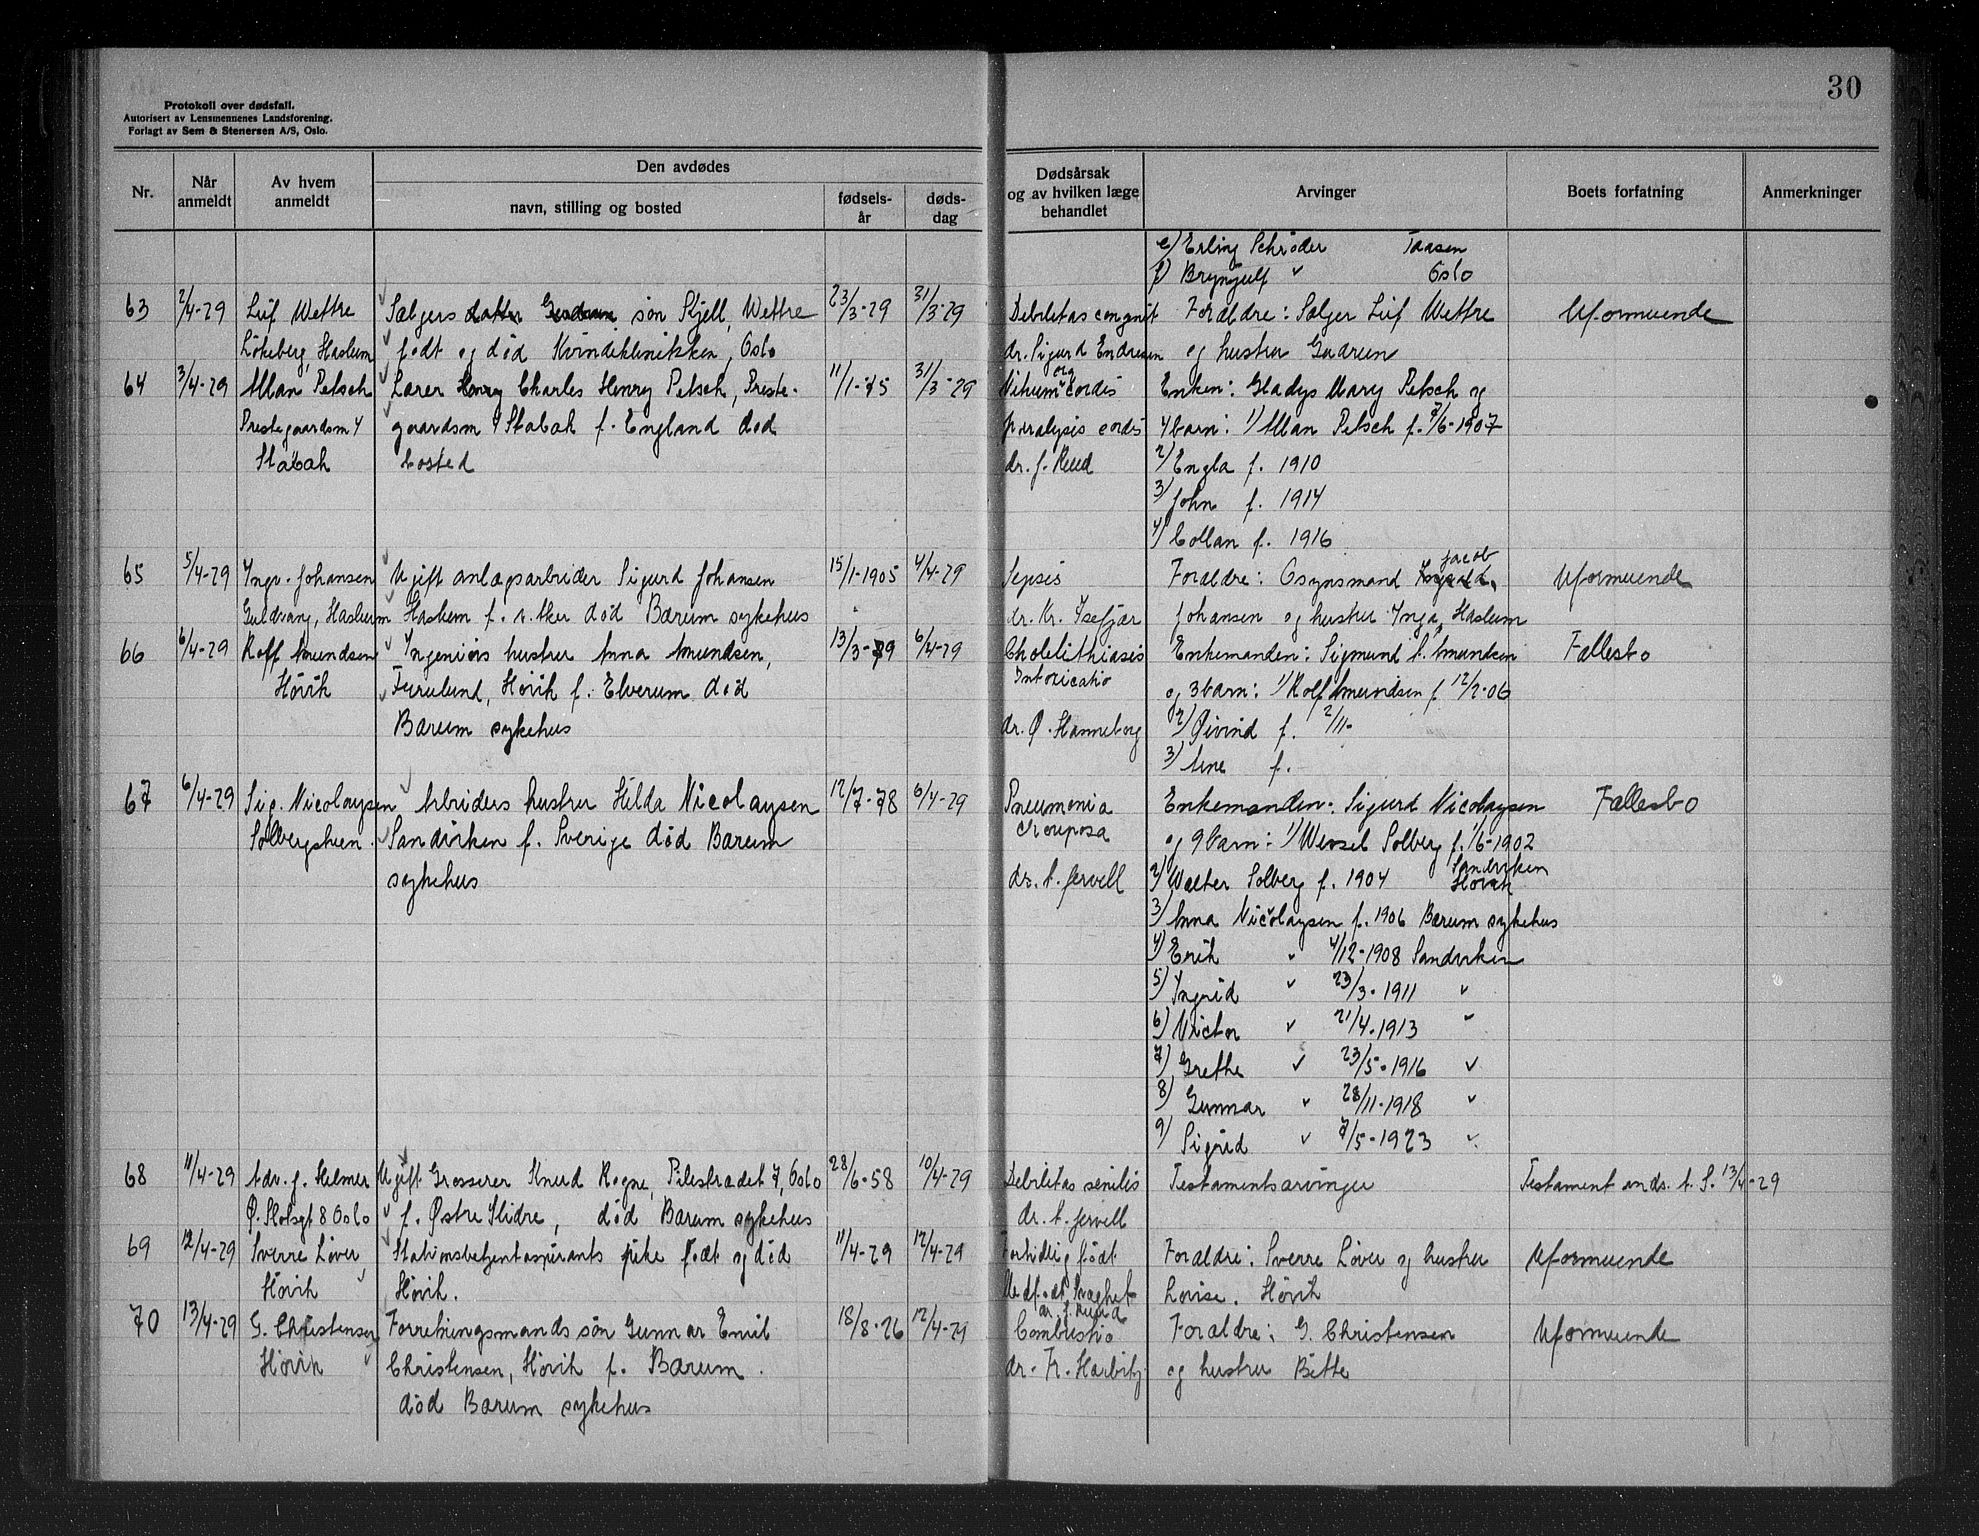 Protokoll over dødsfall.
Autorisert av Lensmennenes Landsforening.
Forlagt av Sem & Stenersen A/S, Oslo.
30
Nr.
Når anmeldt
Av hvem anmeldt
Den avdødes
navn, stilling og bosted
fødsels-år
døds-dag
Dødsårsak og av hvilken læge behandlet
Arvinger
Boets forfatning
Anmerkninger
e) Erling Schrøder Taasen
f) Brynjulf " Oslo
63 2/4-29 Leif Wettre Sælgers datter Gudrun søn Kjell, Wettre 23/3-29 31/3-29 Debilitas congnit Forældre: Sælger Leif Wettre Uformuende
Løkeberg, Haslum født og død Kvindeklinikken, Oslo dr. Sigurd Endresen og hustru Gudrun
64 3/4-29 Allan Petsch Lærer Henry Charles Henry Petsch, Preste- 11/1-75 31/3-29 Vitium org cordis Enken: Gladys Mary Petsch og
Prestegaardsm 4 gaardsm 4 Stabæk f. England død paralysis cordis 4 barn: 1) Allan Petsch f. 7/6-1907
Stabæk bosted dr. J. Ruud 2) Engla f. 1910
3) John f. 1914
4) Collan f. 1916
65 5/4-29 Ingv. Johansen Ugift anlægsarbeider Sigurd Johansen 15/1-1905 4/4-29 Sepsis Forældre: Opsynsmand Jacob Uformuende
Haslum Haslum f. død Bærum sykehus dr. Kr. Isefjær Johansen og hustru Inga, Haslum
66 6/4-29 Rolf Amundsen Ingeniørs hustru Anna Amundsen, 13/3-79 6/4-29 Cholelithiasis Enkemanden: Sigmund A. Amundsen Fællesbo
Høvik Furulund, Høvik f. Elverum død Intoxicatio og 3 barn: 1) Rolf Amundsen f. 12/2-06
Bærum sykehus dr. Ø. Hanneborg 2) Øivind f. 2/11-
3) Arne f.
67 6/4-29 Sig. Nicolaysen Arbeiders hustru Hilda Nicolaysen 12/7-78 6/4-29 Pneumonia Enkemanden: Sigurd Nicolaysen Fællesbo
Solbergsheen Sandviken f. Sverige død Bærum crouposa og 9 barn: 1) Wensel Solberg f. 1/6-1902
Sandviken
sykehus dr. A. Jervell 2) Walter Solberg f. 1904 Høvik
3) Anna Nicolaysen f. 1906 Bærum sykehus
4) Erik " 4/12-1908 Sandviken
5) Ingrid " 23/3-1911 "
6) Victor " 21/4-1913 "
7) Grethe " 23/5-1916 "
8) Gunnar " 28/11-1918 "
9) Sigrid " 7/5-1923 "
68 11/4-29 Adv. J. Helmer Ugift Grosserer Knud Rogne, Pilestrædet 7, Oslo 28/6-58 10/4-29 Debilitas senilis Testamentsarvinger Testament ands. t. S. 13/4-29
Ø. Slotsgt 8 Oslo f. Østre Slidre, død Bærum sykehus dr. A. Jervell
69 12/4-29 Sverre Løver Stationsbetjentaspirants pike født og død 11/4-29 12/4-29 Fortidlig født Forældre: Sverre Løver og hustru Uformuende
Høvik Høvik. Medfødt Svaghet Lovise. Høvik
dr. J. Ruud
70 13/4-29 G. Christensen Forretningsmands søn Gunnar Emil 18/8-26 12/4-29 Combustio Forældre: G. Christensen Uformuende
Høvik Christensen, Høvik f. Bærum. dr. Fr. Harbitz og hustru Bitte
død Bærum sykehus